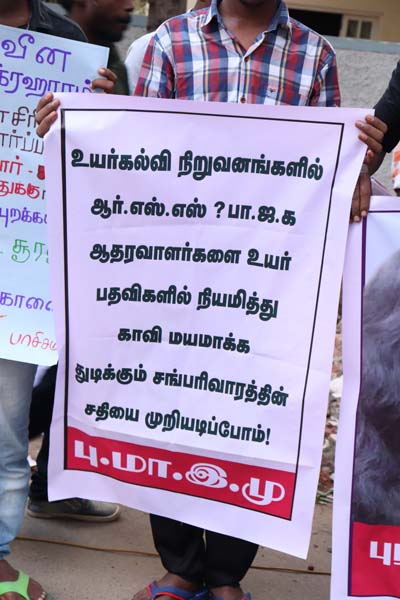 உயர்கல்வி நிறுவனங்களில்
ஆர்.எஸ்.எஸ் ? பா.ஜ.க
ஆதரவாளர்களை உயர்
பதவிகளில் நியமித்து
காவி மயமாக்க
துடிக்கும் சங்பரிவாரத்தின்
சதியை முறியடிப்போம்!
பு.மா.இ.மு